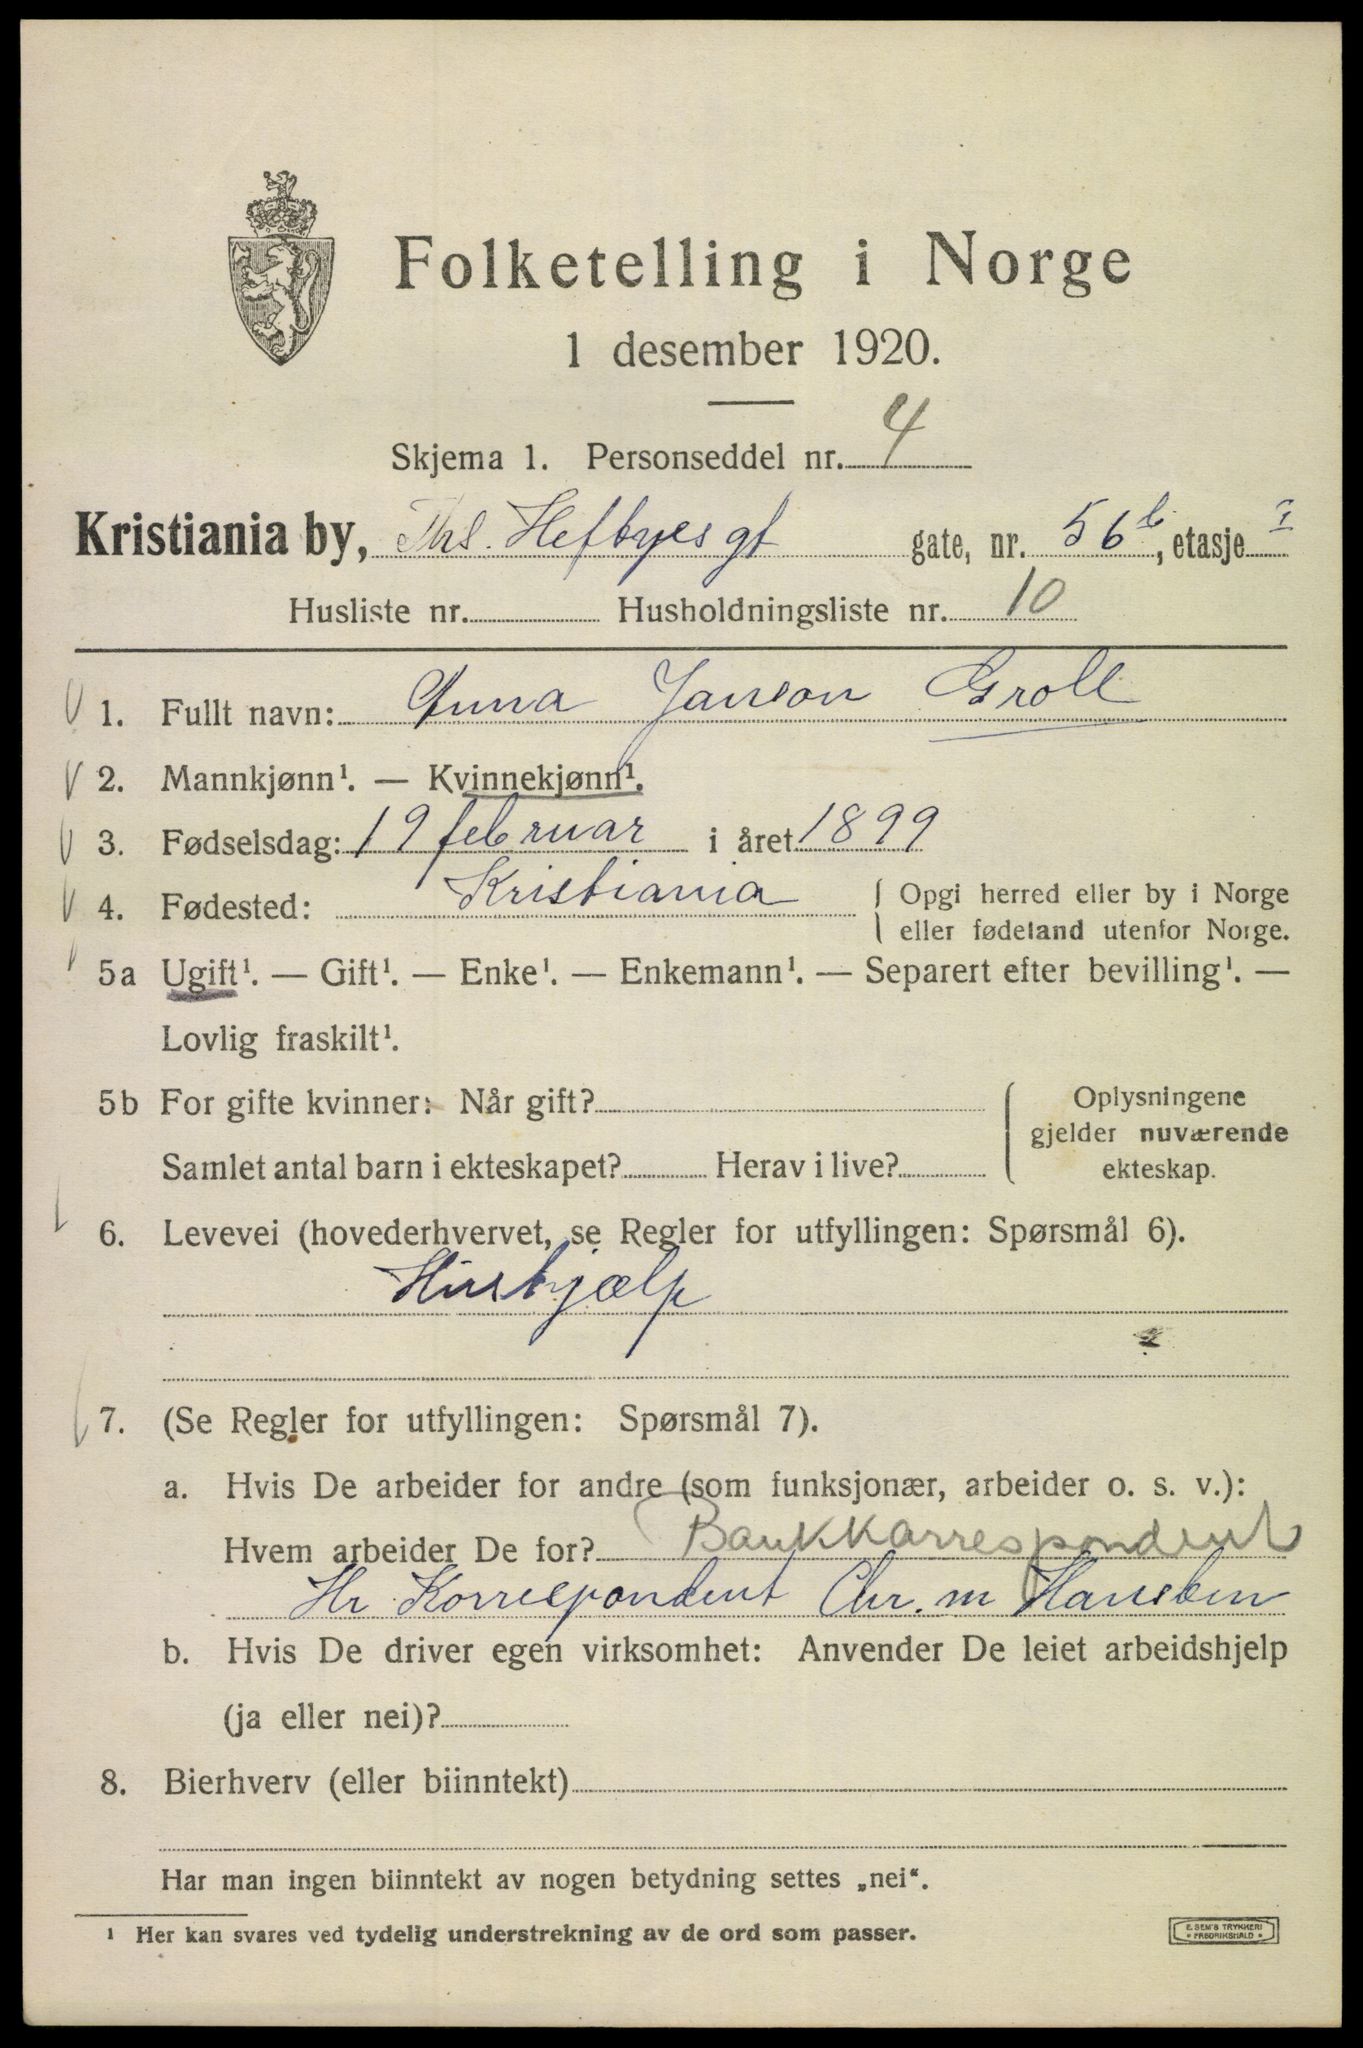 Folketelling i Norge
1 desember 1920.
Skjema 1. Personseddel nr. 4
Kristiania by, Ths. Heftyes gt gate, nr. 56b, etasje I
Husliste nr. Husholdningsliste nr. 10
1. Fullt navn: Anna Janson Groll
2. Mannkjønn¹. — Kvinnekjønn¹.
3. Fødselsdag: 19 februar i året 1899
4. Fødested: Kristiania { Opgi herred eller by i Norge
eller fødeland utenfor Norge.
5a Ugift¹. — Gift¹. — Enke¹. — Enkemann¹. — Separert efter bevilling¹. —
Lovlig fraskilt¹.
5b For gifte kvinner: Når gift? { Oplysningene
gjelder nuværende
Samlet antal barn i ekteskapet? Herav i live? ekteskap.
6. Levevei (hovederhvervet, se Regler for utfyllingen: Spørsmål 6).
Hushjælp
7. (Se Regler for utfyllingen: Spørsmål 7).
a. Hvis De arbeider for andre (som funksjonær, arbeider o. s. v.):
Hvem arbeider De for? Bankkorrespondent
Hr Korrespondent Chr. m Hansben
b. Hvis De driver egen virksomhet: Anvender De leiet arbeidshjelp
(ja eller nei)?
8. Bierhverv (eller biinntekt)
Har man ingen biinntekt av nogen betydning settes „nei“.
¹ Her kan svares ved tydelig understrekning av de ord som passer.
E. SEM'S TRYKKERI
• FREDRIKSHALD •